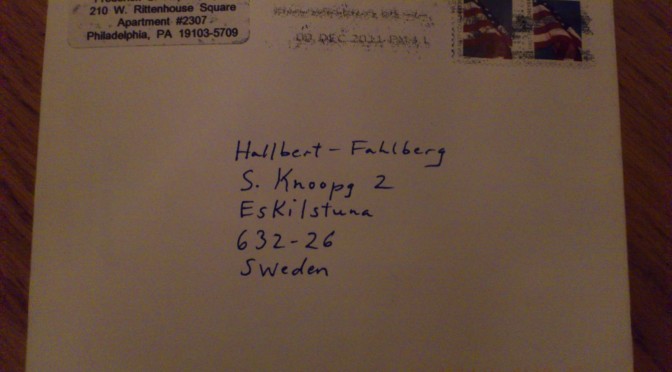 210 W. Rittenhouse Square
Apartment #2307
Philadelphia, PA 19103-5709
DEC 2021
Hallbert-Fahlberg
S. Knoopg 2
Eskilstuna
632-26
Sweden